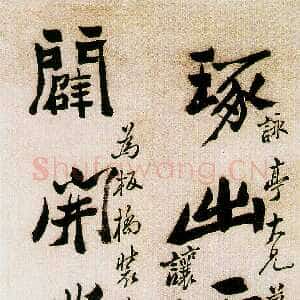 詠亭大兄
琢出
讓
為板橋裝
闢開
Shufawang.CN